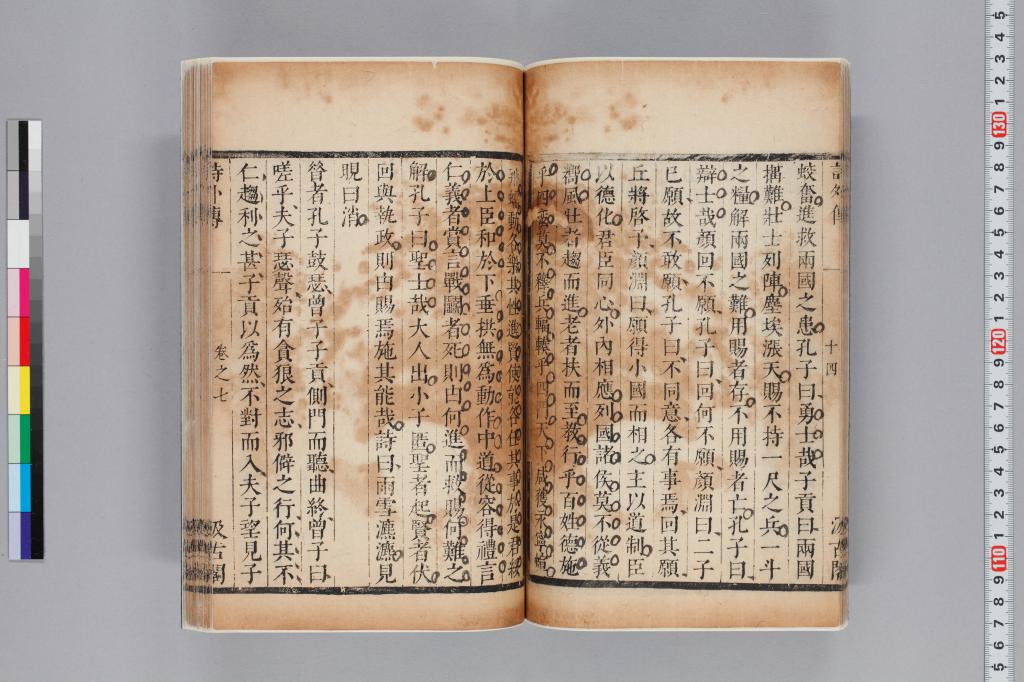 詩外傳
十四
汲古閣
蛟奮進救兩國之患孔子曰勇士哉子貢曰兩國
搆難壯士列陣塵埃漲天賜不持一尺之兵一斗
之糧解兩國之難用賜者存不用賜者亡孔子曰
辯士哉顏回不願孔子曰回何不願顏淵曰二子
已願故不敢願孔子曰不同意各有事焉回其願
丘將啓子顏淵曰願得小國而相之主以道制臣
以德化君臣同心外內相應列國諸侯莫不從義
嚮風壯者趨而進老者扶而至教行乎百姓德施
乎四蠻莫不釋兵輻輳乎四門天下咸獲永寧蝖
飛蠕動各樂其性進賢使能各任其事於是君綏
於上臣和於下垂拱無爲動作中道從容得禮言
仁義者賞言戰鬭者死則由何進而救賜何難之
解孔子曰聖士哉大人出小子匿聖者起賢者伏
回與執政則由賜焉施其能哉詩曰雨雪瀌瀌見
晛曰消
昝者孔子鼓瑟曾子子貢側門而聽曲終曾子曰
嗟乎夫子瑟聲殆有貪狼之志邪僻之行何其不
仁趨利之甚子貢以爲然不對而入夫子望見子
詩外傳
卷之七
汲古閣